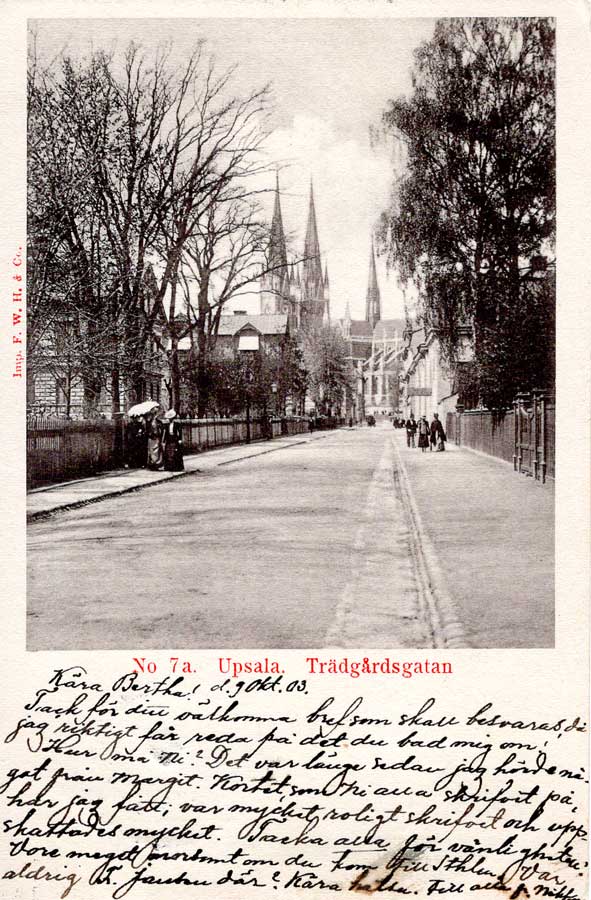 Imp. F. W. H. & Co.
No 7a. Upsala. Trädgårdsgatan
Kära Bertha! d. 9 Okt. 03.
Tack för ditt välkomna bref som skall besvaras då
jag riktigt får reda på det du bad mig om!
Hur må Ni? Det var länge sedan jag hörde nå-
got från Margit. Kortet som Ni alla skrifvit på,
har jag fått, var mycket roligt skrifvit och upp-
skattades mycket. Tacka alla för vänligheten!
Vore meget morsomt om du kom till Sthlm. Var
aldrig där? Kära Till alla